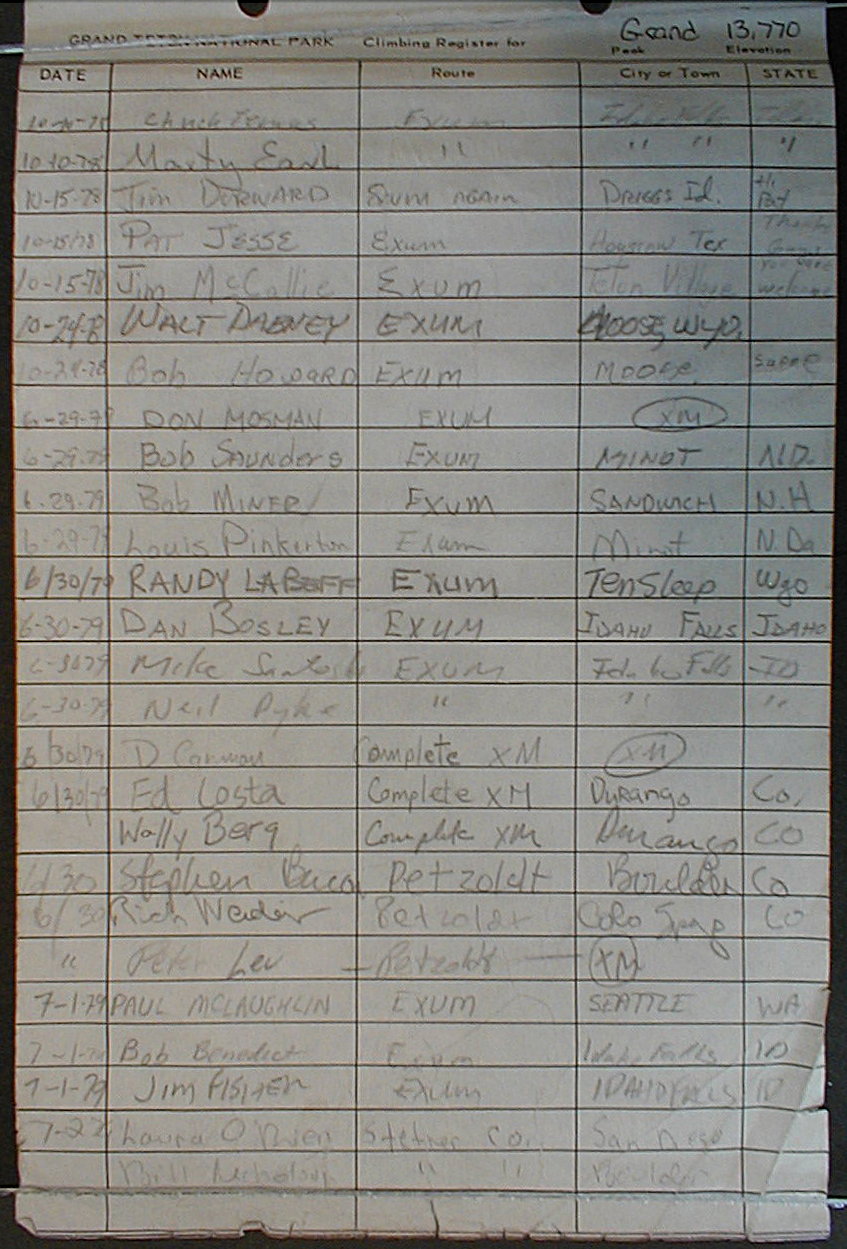 GRAND TETON NATIONAL PARK Climbing Register for Grand 13,770
Peak Elevation
DATE NAME Route City or Town STATE
Chuck Exum Idaho Falls
10-10-78 Marty Earl " " " "
10-15-78 Jim DORWARD Exum AGAIN DRIGGS Id. Hi Pat
10-15/78 PAT JESSE Exum Houston Tex Thanks
10-15-78 Jim McCallie Exum Teton Village You're welcome
10-24-8 WALT DABNEY EXUM MOOSE, WYO.
10-24-78 Bob HOWARD EXUM MOOSE, Same
6-29-79 DON MOSMAN EXUM XM
6-29-79 Bob SAUNDERS EXUM MINOT N.D.
6.29.79 Bob MINER EXUM SANDWICH N.H.
6-29-79 Louis Pinkerton Exum Minot N.Da
6/30/79 RANDY LABEFF EXUM TenSleep Wyo
6-30-79 DAN BOSLEY EXUM IDAHO FALLS IDAHO
6-30-79 Mike EXUM Idaho Falls ID
6-30-79 Neil Pyke " " " "
6/30/79 D Complete XM XM
6/30/79 Ed Costa Complete XM Durango Co.
Wally Berg Complete XM Durango CO
6/30 Stephen Petzoldt Boulder Co
6/30 Rich Petzoldt Colo Spgs CO
" Peter Lev — Petzoldt — XM
7-1-79 PAUL MCLAUGHLIN EXUM SEATTLE WA
7-1-79 Bob Benedict Exum Idaho Falls ID
7-1-79 JIM FISHER EXUM IDAHO FALLS ID
7-2 Laura O'Brien Stettner Co. San Diego
Bill " " Boulder